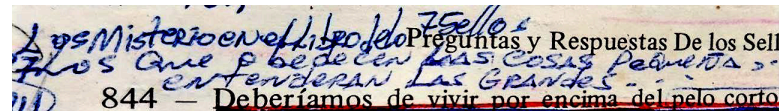 Los Misterio en el Libro de lo 7 Sellos
Preguntas y Respuestas De los Sell
Los Que obedecen Las COSAS Pequeña
entenderan Las GRandes
844 – Deberíamos de vivir por encima del pelo corto